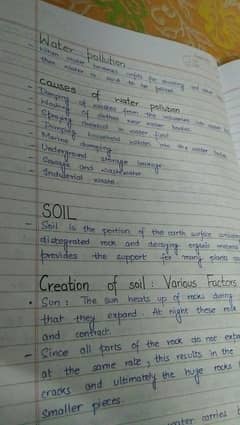 Water pollution
- When water becomes unfit for drinking and other
then water is said to be
Causes of water pollution
- Dumping of wastes from the industries into water
- Washing of clothes near water bodies.
- Spraying chemical in water
- Dumping household wastes into the water bodies
- Marine dumping.
- Underground storage leakage.
- Sewage and wastewater
- Industrial waste.
SOIL
- Soil is the portion of the earth surface
distegrated rock and decaying organic material
provides the support for many plants
Creation of soil : Various Factors
• Sun : The sun heats up of rocks during
that they expand. At night these rock
and contract.
- Since all parts of the rock do not expand
at the same rate, this results in the
cracks and ultimately the huge rocks
smaller pieces.
water carries